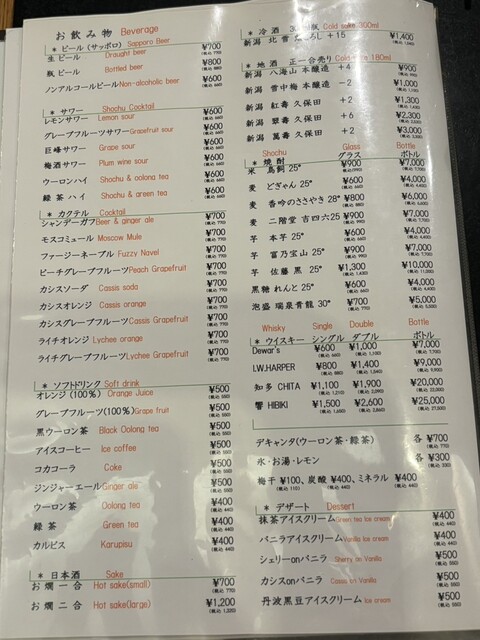 お飲み物 Beverage
* ビール (サッポロ) Sapporo Beer
生ビール Draught beer ¥700 (税込 770)
瓶ビール Bottled beer ¥800 (税込 880)
ノンアルコールビール Non-alcoholic beer ¥600 (税込 660)
* サワー Shochu Cocktail
レモンサワー Lemon sour ¥600 (税込 660)
グレープフルーツサワー Grapefruit sour ¥600 (税込 660)
巨峰サワー Grape sour ¥600 (税込 660)
梅酒サワー Plum wine sour ¥600 (税込 660)
ウーロンハイ Shochu & oolong tea ¥600 (税込 660)
緑茶ハイ Shochu & green tea ¥600 (税込 660)
* カクテル Cocktail
シャンデーガフ Beer & ginger ale ¥700 (税込 770)
モスコミュール Moscow Mule ¥700 (税込 770)
ファージーネーブル Fuzzy Navel ¥700 (税込 770)
ピーチグレープフルーツ Peach Grapefruit ¥700 (税込 770)
カシスソーダ Cassis soda ¥700 (税込 770)
カシスオレンジ Cassis orange ¥700 (税込 770)
カシスグレープフルーツ Cassis Grapefruit ¥700 (税込 770)
ライチオレンジ Lychee orange ¥700 (税込 770)
ライチグレープフルーツ Lychee Grapefruit ¥700 (税込 770)
* ソフトドリンク Soft drink
オレンジ (100%) Orange Juice ¥500 (税込 550)
グレープフルーツ(100%) Grape fruit ¥500 (税込 550)
黒ウーロン茶 Black Oolong tea ¥500 (税込 550)
アイスコーヒー Ice coffee ¥500 (税込 550)
コカコーラ Coke ¥500 (税込 550)
ジンジャーエール Ginger ale ¥500 (税込 550)
ウーロン茶 Oolong tea ¥400 (税込 440)
緑茶 Green tea ¥400 (税込 440)
カルピス Karupisu ¥400 (税込 440)
* 日本酒 Sake
お燗一合 Hot sake(small) ¥700 (税込 770)
お燗二合 Hot sake(large) ¥1,200 (税込 1,320)
* 冷酒 Cold sake 300ml
新潟 +15 ¥1,400
* 地酒 正一合売り 180ml
新潟 八海山 本醸造 +4 ¥900
新潟 雪中梅 本醸造 -2 ¥1,000
新潟 紅壽 久保田 +2 ¥1,300
新潟 翠壽 久保田 +6 ¥2,300
新潟 萬壽 久保田 +2 ¥3,000
Shochu Glass Bottle
* 焼酎 グラス ボトル
米 鳥飼 25° ¥900 ¥7,000
麦 どぎゃん 25° ¥600 ¥4,000
麦 香吟のささやき 28° ¥800 ¥6,000
麦 二階堂 吉四六25 ¥900 ¥7,000
芋 本芋 25° ¥600 ¥4,000
芋 富乃宝山 25° ¥900 ¥7,000
芋 佐藤 黒 25° ¥1,300 ¥10,000
黒糖 れんと 25° ¥600 ¥4,000
泡盛 瑞泉青龍 30° ¥700 ¥5,000
Whisky Single Double Bottle
* ウイスキー シングル ダブル ボトル
Dewar's ¥600 ¥1,000 ¥7,000
I.W.HARPER ¥800 ¥1,400 ¥9,000
知多 CHITA ¥1,100 ¥1,900 ¥20,000
響 HIBIKI ¥1,500 ¥2,600 ¥25,000
デキャンタ(ウーロン茶・緑茶) 各 ¥700 (税込 770)
氷・お湯・レモン 各 ¥300 (税込 330)
梅干 ¥100、炭酸 ¥400、ミネラル ¥400
* デザート Dessert
抹茶アイスクリーム Green tea Ice cream ¥400 (税込 440)
バニラアイスクリーム Vanilla Ice cream ¥400 (税込 440)
シェリーonバニラ Sherry on Vanilla ¥500 (税込 550)
カシスonバニラ Cassis on Vanilla ¥500 (税込 550)
丹波黒豆アイスクリーム Ice cream ¥400 (税込 440)